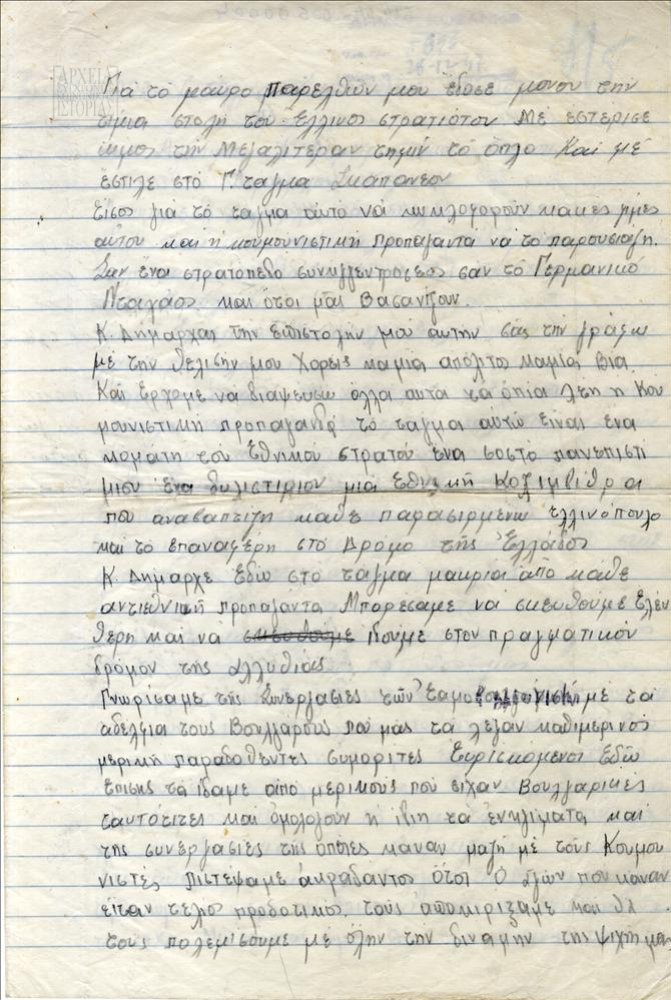 ΑΡΧΕΙΑ
ΙΣΤΟΡΙΑΣ
Για τὸ μαύρο παρελθών μου ἔδοσε μονον την
τίμια στολή τοῦ Ελλινος στρατιότου Μέ εστερισε
ομος τήν Μεγαλιτεραν τημήν τὸ όπλο Και μέ
ἔστιλε στὸ Γ. ταγμα Σκαπανεον
Εισος γιά τὸ ταγμα αὐτό νά κικλοφορούν κακές φίμες
αὐτου και η κουμουνιστική προπαγαντα να τὸ παρουσιαζη.
Σαν ἐνα στρατοπεδο συνκγεντροσεος σαν τὸ Γερμανικό
Νταχαου και ότοι μας Βασανιζουν.
Κ. Δημαρχαι την επιστολήν μου αυτην σας την γραφω
μέ την θελισην μου Χορεις καμια απολιτος καμια βια
Και Ερχομε να διαψευσω όλλα αυτα τα όπια λεη η Κου
μουνιστικη προπαγανδα το ταγμα αυτω είναι ενα
κοματη του Εθνικου στρατού ένα σοστό πανεπιστι
μιου ένα διλιστιριον μιά Εθνικη Κολιμβιθρα
που αναβαπτιζη καθε παρασιρμενω Ελλινόπουλο
και το επαναφερη στο Δρόμο της Ελλάδος
Κ. Δημαρχε Εδω στο ταγμα μακρια απο καθε
αντιεθνική προπαγαντα Μπορεσαμε να σκευθούμε Ελευ
θερη και να σκευθουμε Πουμε στον πραγματικόν
δρόμον της αλλυθιας
Γνωρίσαμε της Συνεργασιες τών μέ τα
αδελφια τους Βουλγαρους που μας τα λεγαν καθιμερινος
μερικη παραδοθεντες σιμορίτες Ευρισκομενοι Εδω
Επισης τα ίδαμε από μερικους που είχαν Βουλγαρικες
ταυτότιτες και ομολογούν η ιδιη τα ένκλίματα και
της συνεργασιες τής όποιες καναν μαζη με τους Κουμου
νιστες Πιστέψαμε ακραδαντος ότοι ο αγών που καναν
είταν τελιος προδοτικος τους αποκιριξαμε και θα
τους πολεμισουμε μέ όλην την διναμην της ψιχης μας